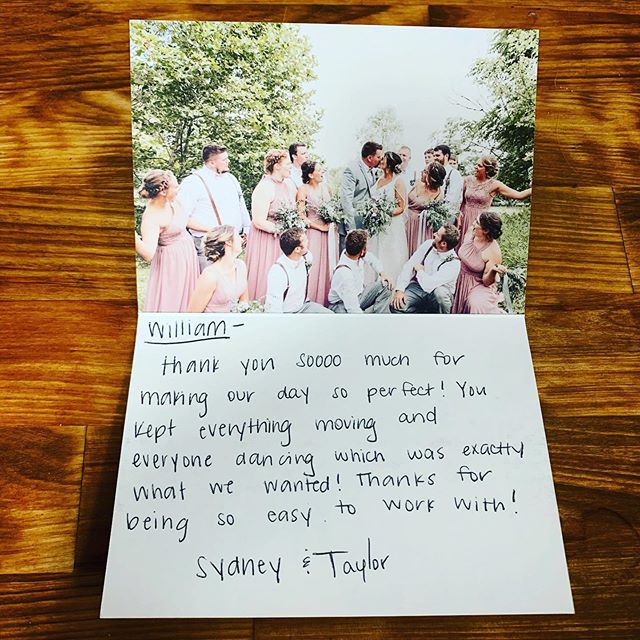 William -
Thank you soooo much for
making our day so perfect! You
kept everything moving and
everyone dancing which was exactly
what we wanted! Thanks for
being so easy to work with!
Sydney & Taylor